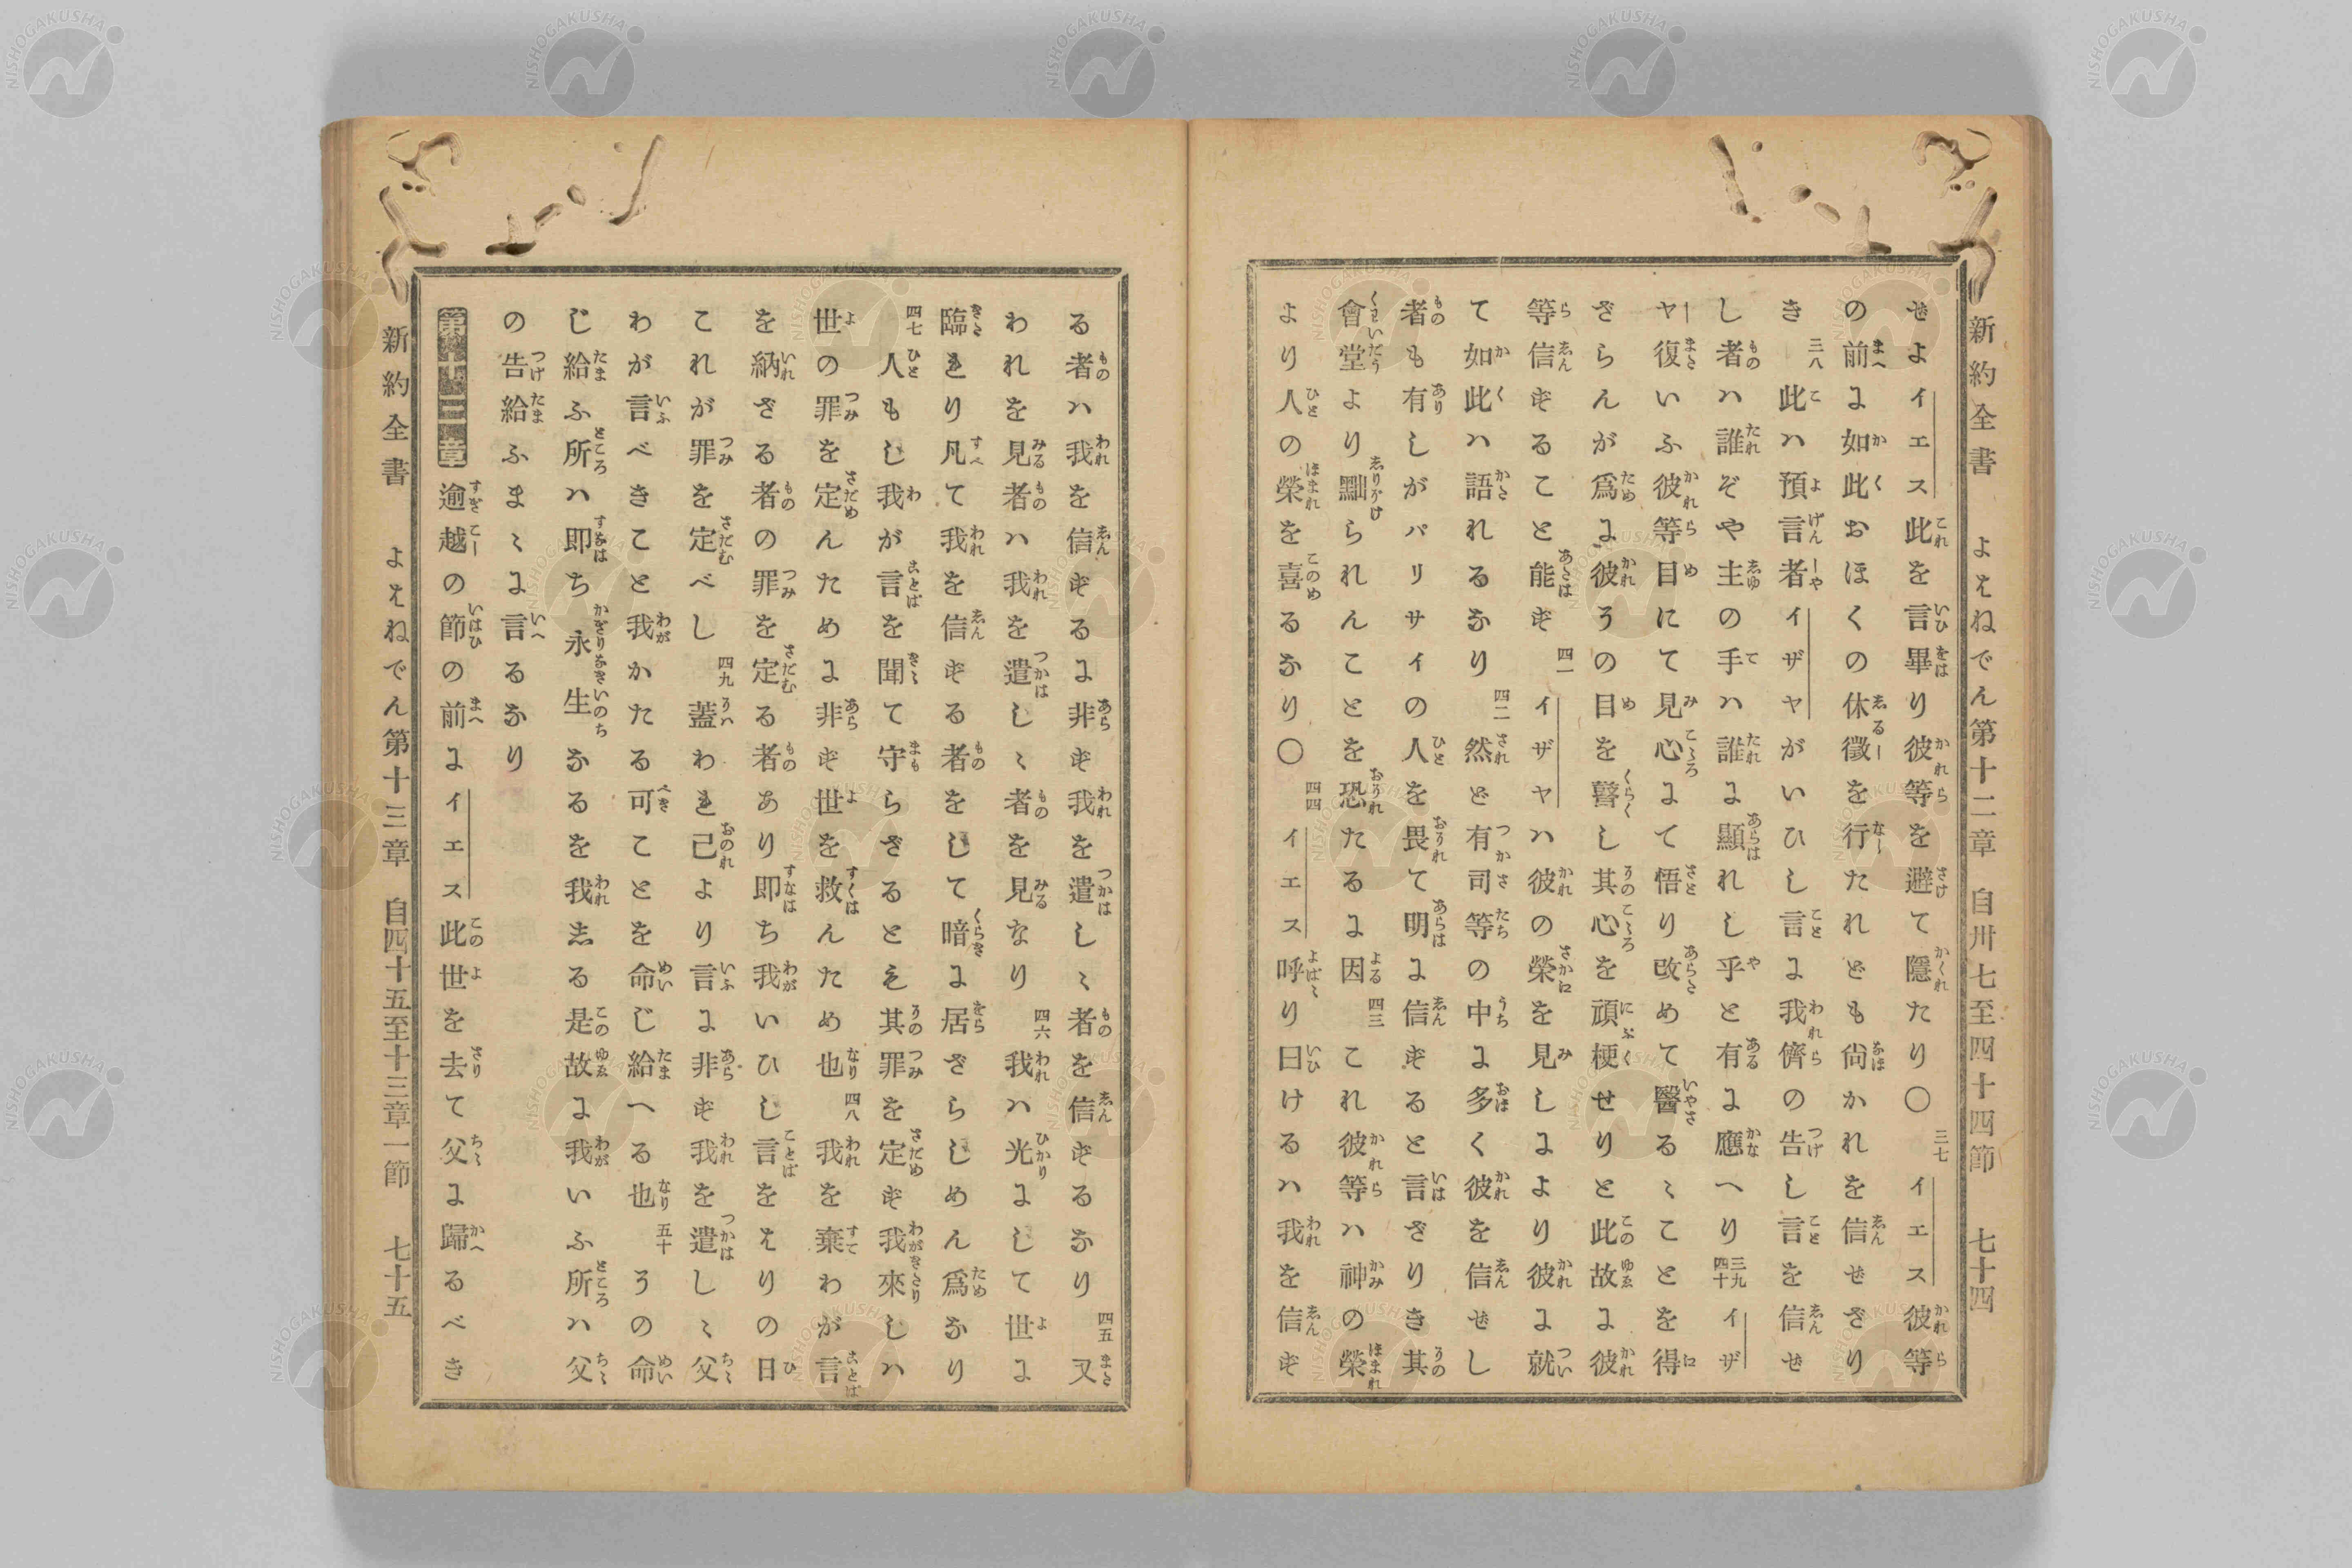 新約全書　よはねでん第十二章　自卅七至四十四節　七十四
せよイエス此を言畢り彼等を避て隱たり〇三七イエス彼等
の前に如此おほくの休徵を行たれども尙かれを信ぜざり
き三八此ハ預言者イザヤがいひし言に我儕の告し言を信ぜ
し者ハ誰ぞや主の手ハ誰に顯れし乎と有に應へり三九四十イザ
ヤ復いふ彼等目にて見心にて悟り改めて醫るゝことを得
ざらんが爲に彼その目を瞽し其心を頑梗せりと此故に彼
等信ずること能ず四一イザヤハ彼の榮を見しにより彼に就
て如此ハ語れるなり四二然ど有司等の中に多く彼を信ぜし
者も有しがパリサイの人を畏て明に信ずると言ざりき其
會堂より黜られんことを恐たるに因四三これ彼等ハ神の榮
より人の榮を喜るなり〇四四イエス呼り曰けるハ我を信ず
る者ハ我を信ずるに非ず我を遣しゝ者を信ずるなり四五又
われを見者ハ我を遣しゝ者を見なり四六我ハ光にして世に
臨れり凡て我を信ずる者をして暗に居ざらしめん爲なり
四七人もし我が言を聞て守らざるとも其罪を定ず我來しハ
世の罪を定んために非ず世を救んため也四八我を棄わが言
を納ざる者の罪を定る者あり即ち我いひし言をはりの日
これが罪を定べし四九蓋われ己より言に非ず我を遣しゝ父
わが言べきこと我かたる可ことを命じ給へる也五十その命
じ給ふ所ハ即ち永生なるを我志る是故に我いふ所ハ父
の告給ふまゝに言るなり
第十三章逾越の節の前にイエス此世を去て父に歸るべき
新約全書　よはねでん第十三章　自四十五至十三章一節　七十五
NISHOGAKUSHA